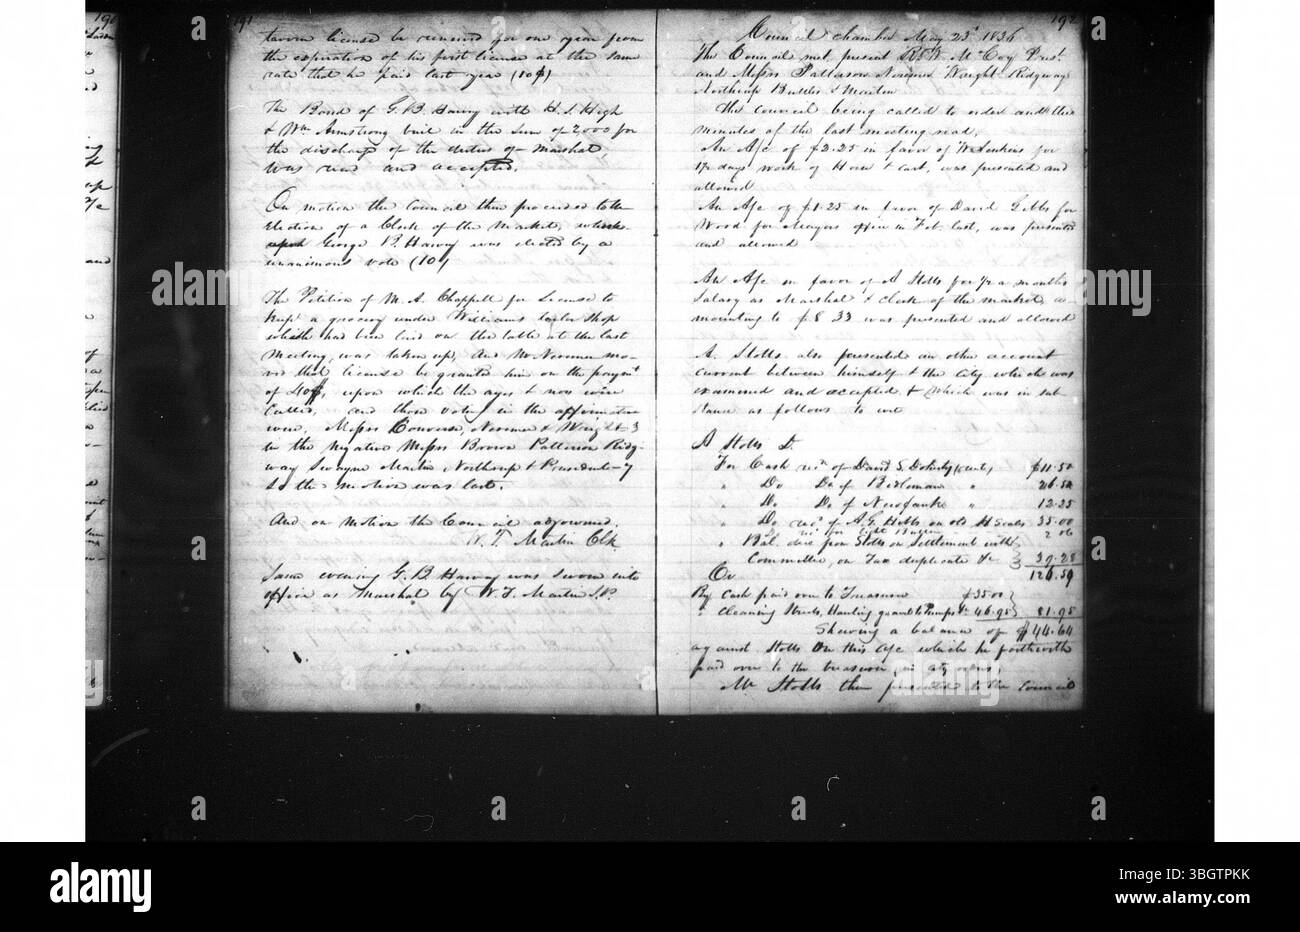 191
tavern license be renewed for one year from
the expiration of his first license at the same
rate that he paid last year (10$)
The Bond of G. B. Harvy with H. S. High
& Wm Armstrong bail in the sum of 2000 for
the discharge of the duties of Marshal
was read and accepted.
On motion the Council then proceeded to the
election of a Clerk of the Market, where
upon George B. Harvy was elected by a
unanimous vote (10)
The Petition of M. A. Chappell for License to
keep a grocery under Williams taylor shop
which had been laid on the table at the last
Meeting, was taken up, And Mr Noreman mo-
ved that license be granted him on the paymt
of 40$, upon which the ayes & noes were
Called, and those voting in the affirmative
were, Messrs Converse, Noreman & Wright - 3
In the Negative Messrs Brown Patterson Ridg-
way Swayne Martin, Northrup & President - 7
So the motion was lost.
And on motion the Council adjourned.
W. T. Martin Clk
Same evening G. B. Harvy was sworn into
office as Marshal by W. T. Martin J.P.
192
Council chamber May 23d 1836
The Council met present R. W. McCoy Prest
and Messrs Patterson Noreman Wright Ridgway
Northrup Butler & Martin
The Council being called to order and the
minutes of the last meeting read,
An A/c of $2.25 in favor of W. Jenkins for
1½ days work of Horse & Cart, was presented and
allowed
An A/c of $1.25 in favor of David Gibbs for
Wood for Mayors office in Feb. last, was presented
and allowed
An A/c in favor of A Stotts for ½ a months
Salary as Marshal & clerk of the market, a-
mounting to $8 33 was presented and allowed
A. Stotts also presented an other account
current between himself & the City which was
examined and accepted & which was in sub
stance as follows to wit
A Stotts Dr
For Cash recd of David S. Doherty (rent) $11.50
" Do Do of " 26.50
" Do Do of " 12.25
" Do recd of A. G. Hibbs on old H Scales 35.00
2 06
" Bal. due from Stotts on Settlement with
Committee, on Tax duplicate &c 39.28
126.59
Cr
By Cash paid over to Treasurer $35.00
" Cleaning Streets, Hauling gravel & Pumps &c 46.95 81.95
Shewing a balance of $44.64
against Stotts on this A/c which he forthwith
paid over to the treasurer, in city orders,
Mr Stotts then presented to the Council
a
alamy
Image ID: 3BGTPKK
www.alamy.com